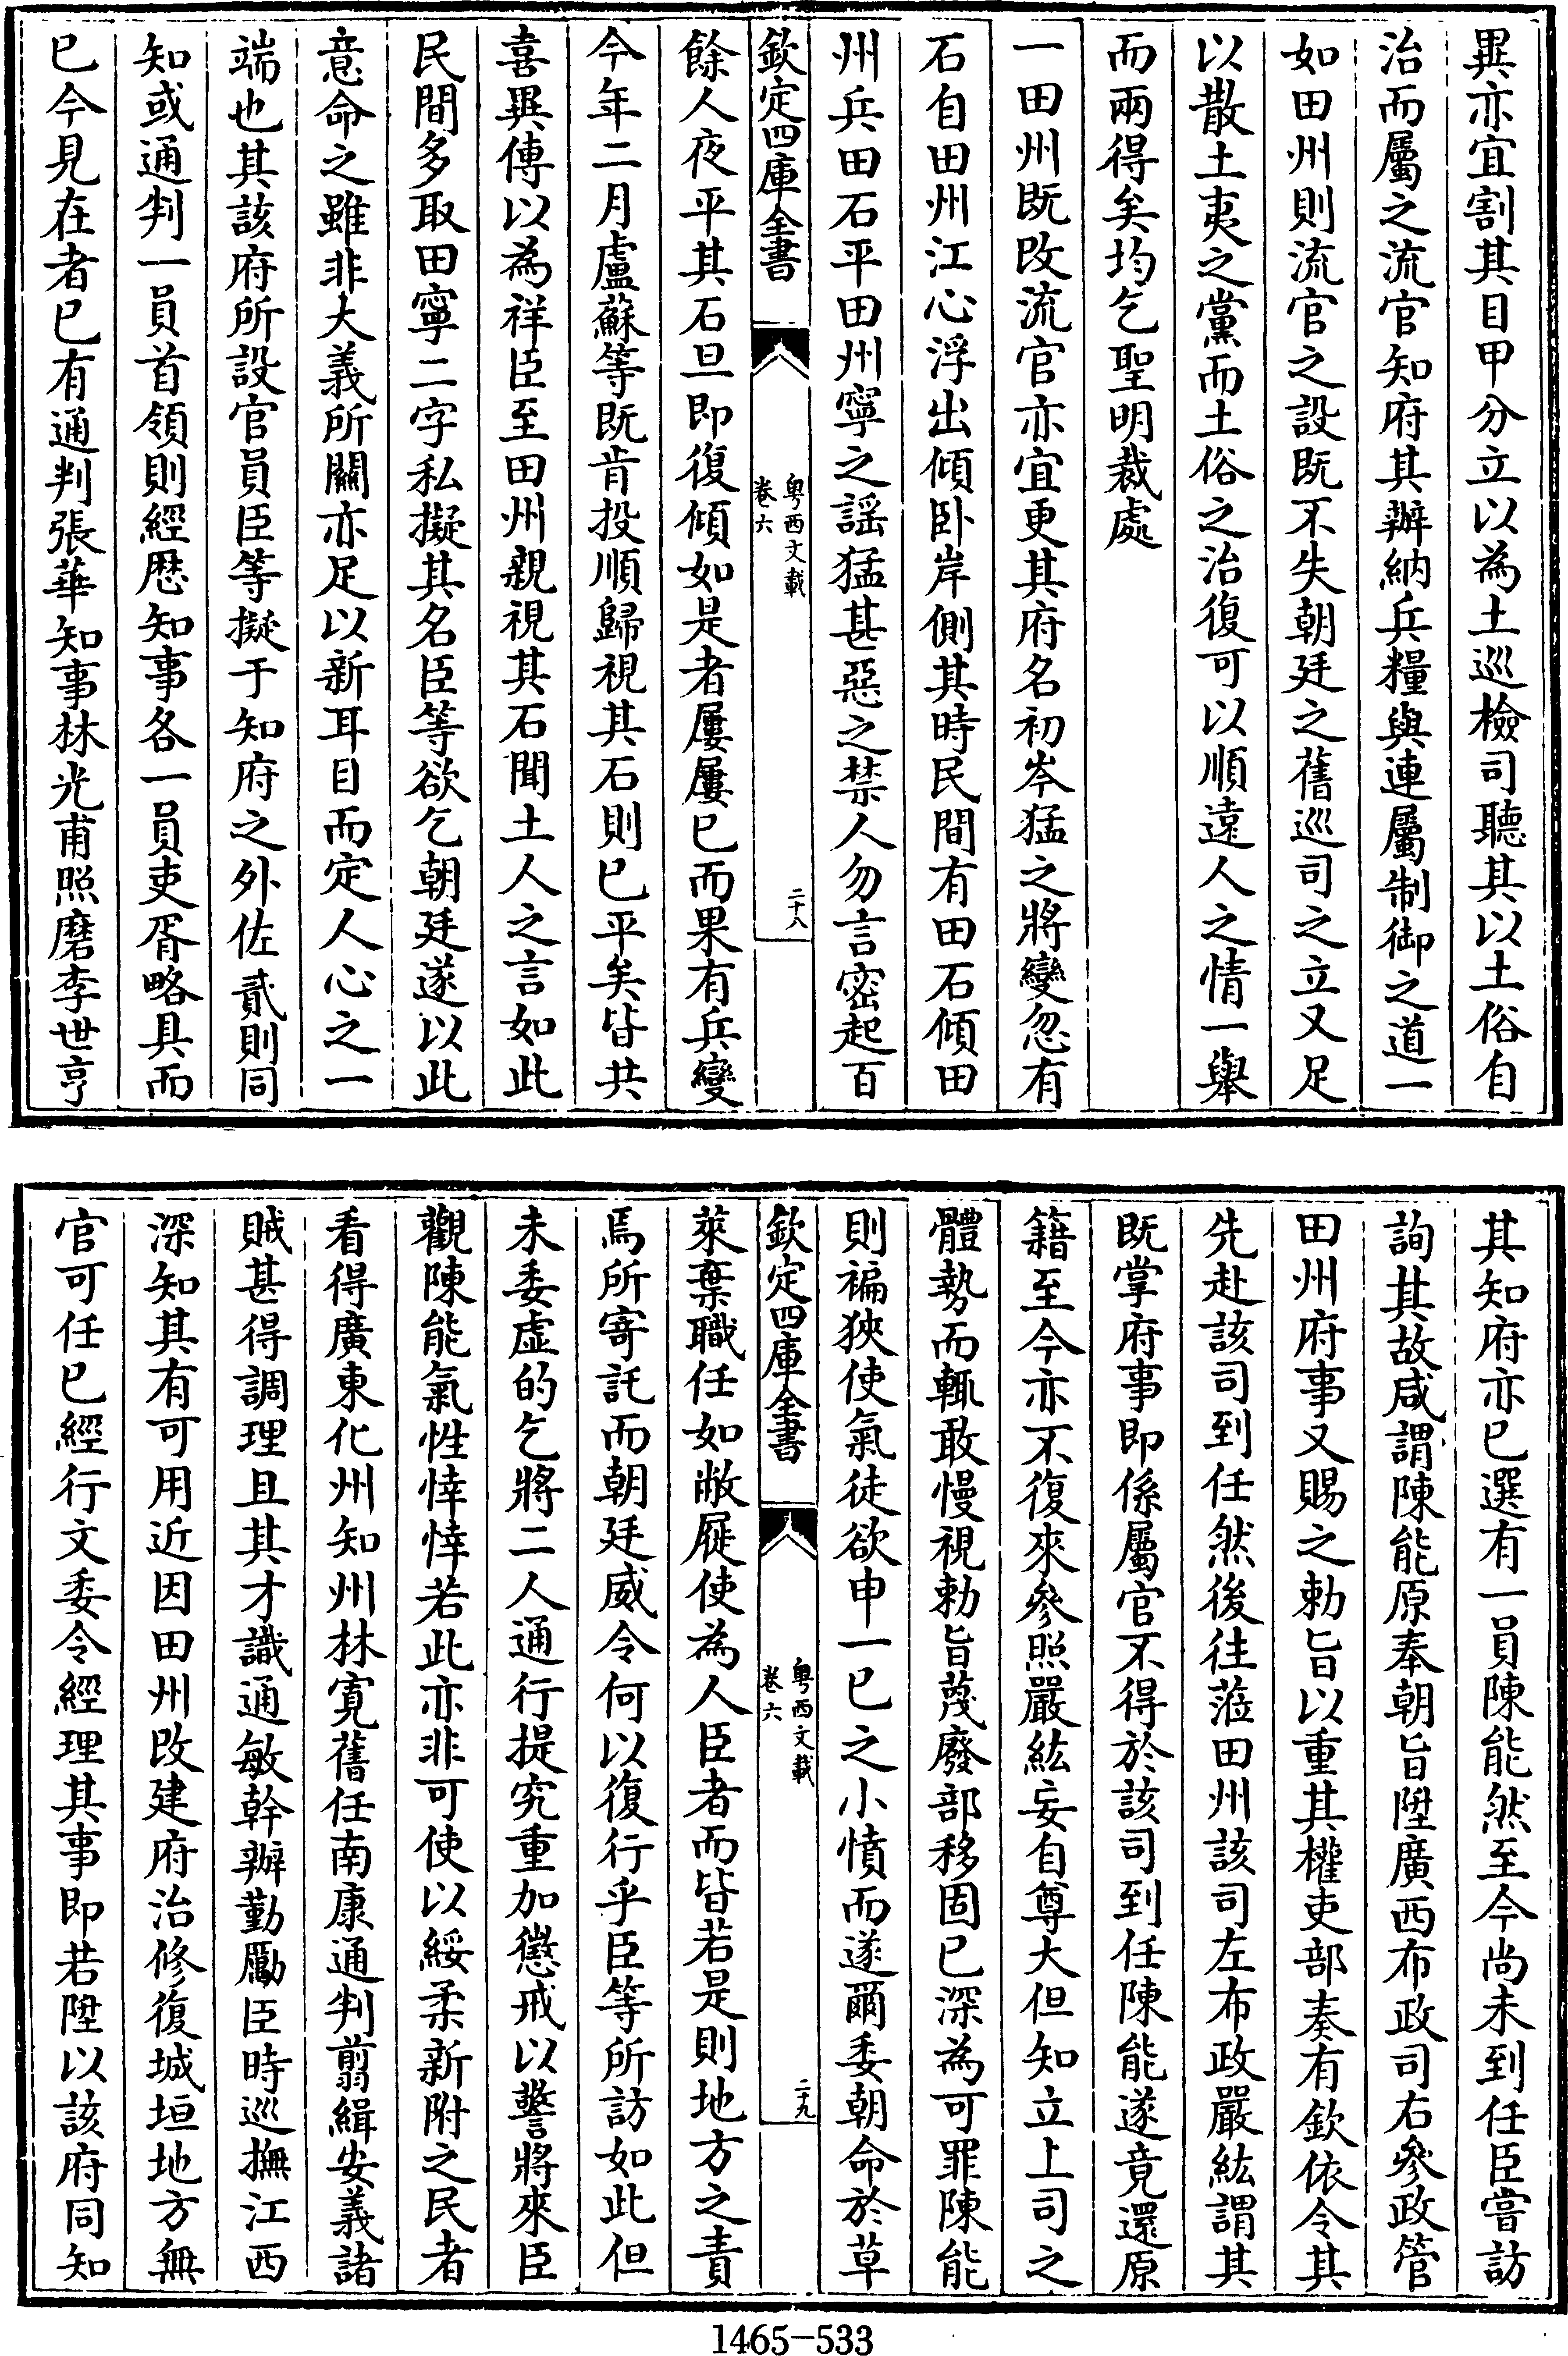 異亦宜割其目甲分立以為土巡檢司聽其以土俗自
治而屬之流官知府其辦納兵糧與連屬制御之道一
如田州則流官之設既不失朝廷之舊巡司之立又足
以散土夷之黨而土俗之治復可以順遠人之情一舉
而兩得矣均乞聖明裁處
一田州既改流官亦宜更其府名初岑猛之將變忽有
石自田州江心浮出傾卧岸側其時民間有田石傾田
州兵田石平田州寧之謡猛甚惡之禁人勿言密起百
欽定四庫全書
粤西文載
卷六
二十八
餘人夜平其石旦即復傾如是者屢屢已而果有兵變
今年二月盧蘇等既肯投順歸視其石則已平矣皆共
喜異傳以為祥臣至田州親視其石聞土人之言如此
民間多取田寧二字私擬其名臣等欲乞朝廷遂以此
意命之雖非大義所關亦足以新耳目而定人心之一
端也其該府所設官員臣等擬于知府之外佐貳則同
知或通判一員首領則經歴知事各一員吏胥略具而
已今見在者已有通判張華知事林光甫照磨李世亨
其知府亦已選有一員陳能然至今尚未到任臣嘗訪
詢其故咸謂陳能原奉朝旨陞廣西布政司右參政管
田州府事又賜之勅旨以重其權吏部奏有欽依令其
先赴該司到任然後往蒞田州該司左布政嚴紘謂其
既掌府事即係屬官不得於該司到任陳能遂竟還原
籍至今亦不復來參照嚴紘妄自尊大但知立上司之
體勢而輒敢慢視勅旨蔑廢部移固已深為可罪陳能
則褊狹使氣徒欲申一已之小憤而遂爾委朝命於草
欽定四庫全書
粤西文載
卷六
二十九
萊棄職任如敝屣使為人臣者而皆若是則地方之責
焉所寄託而朝廷威令何以復行乎臣等所訪如此但
未委虛的乞將二人通行提究重加懲戒以警將來臣
觀陳能氣性悻悻若此亦非可使以綏柔新附之民者
看得廣東化州知州林寛舊任南康通判翦緝安義諸
賊甚得調理且其才識通敏幹辦勤勵臣時巡撫江西
深知其有可用近因田州改建府治修復城垣地方無
官可任已經行文委令經理其事即若陞以該府同知
1465-533